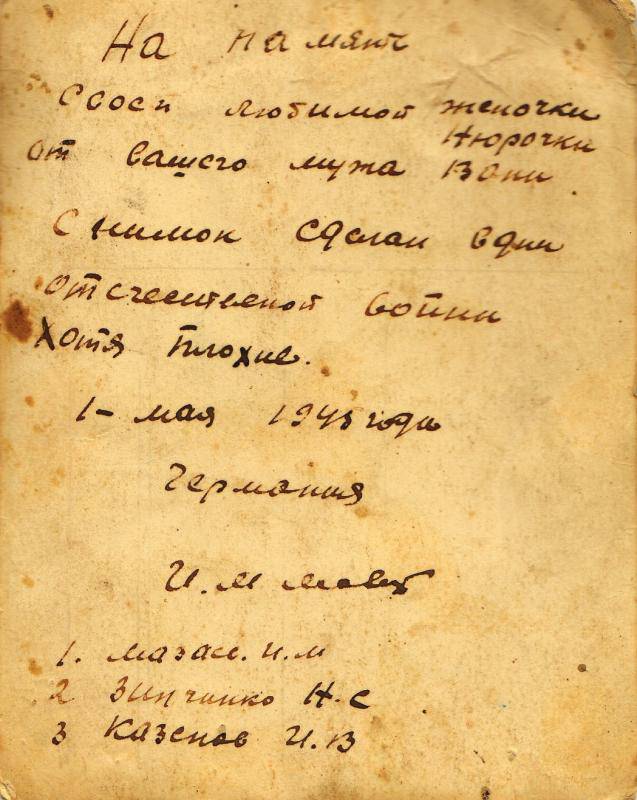 На памят
своей любимой женочки
Нюрочки
от вашего мужа Вани.
Снимок сделан в дни
отечественой войны
Хотя плохие.
1- мая 1945 года
Германия
И. М
1. И. М
2 Зинченко Н. С
3 Казенов И. В